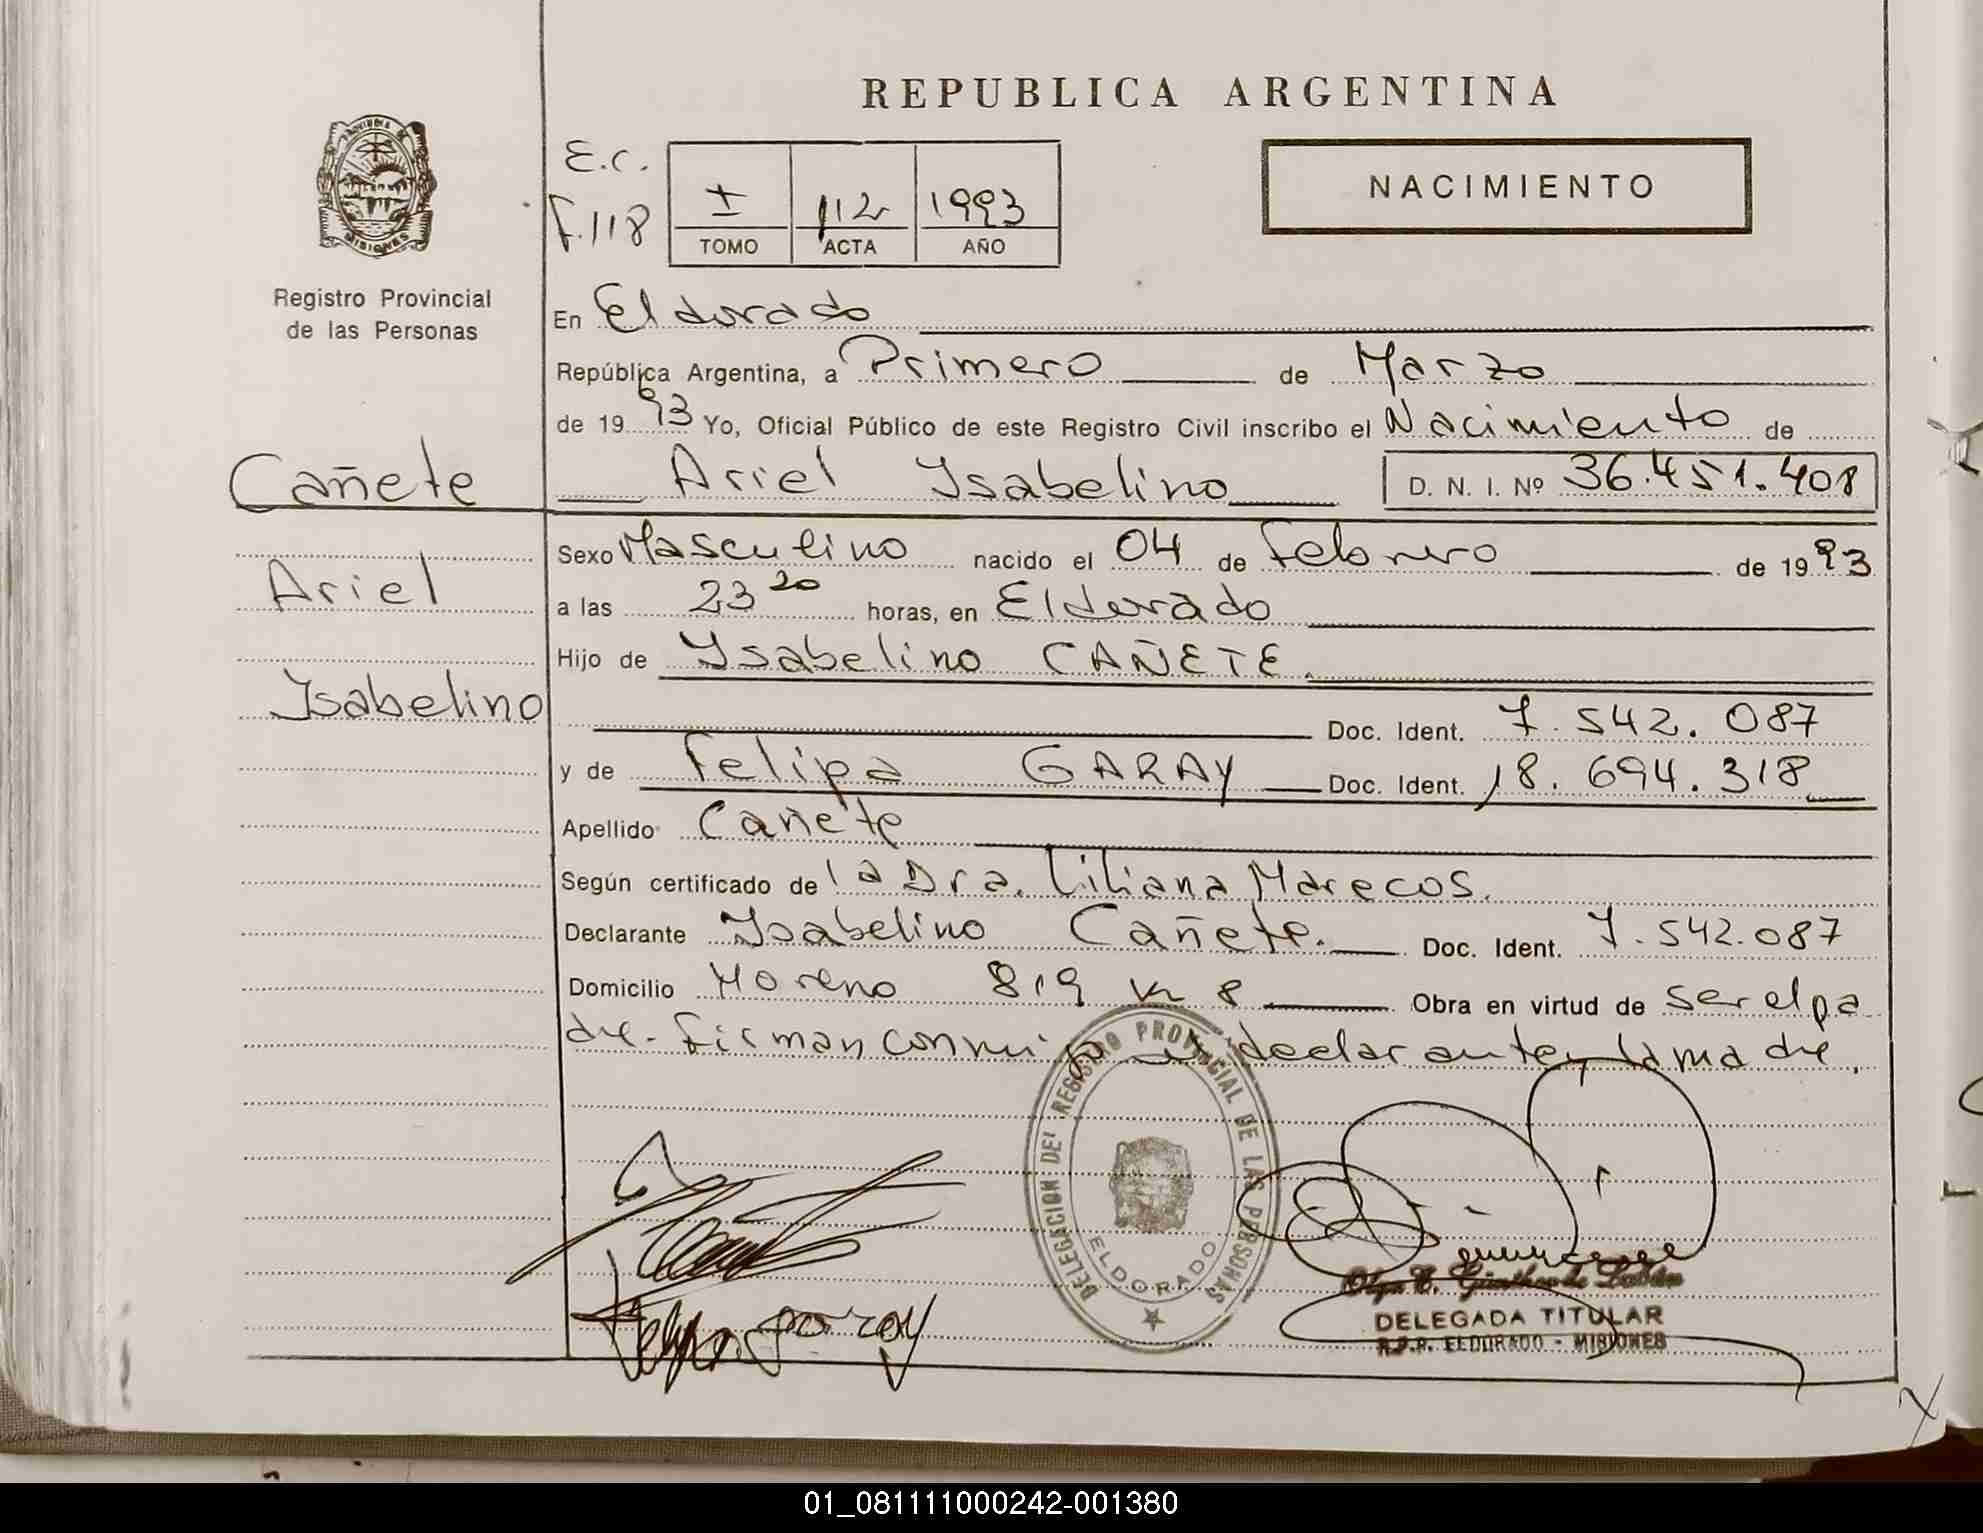 REPUBLICA ARGENTINA
NACIMIENTO
PROVINCIA DE
MISIONES
Registro Provincial
de las Personas
E.C.
F.118
I 112 1993
TOMO ACTA AÑO
En Eldorado
República Argentina, a Primero de Marzo
de 1993 Yo, Oficial Público de este Registro Civil inscribo el Nacimiento de
Cañete
Ariel Isabelino D. N. I. Nº 36.451.408
Sexo Masculino nacido el 04 de Febrero de 1993
Ariel
a las 23 20 horas, en Eldorado
Hijo de Isabelino CAÑETE
Isabelino
Doc. Ident. 7.542.087
y de Felipa GARAY Doc. Ident. 18.694.318
Apellido Cañete
Según certificado de la Dra. Liliana Marecos.
Declarante Isabelino Cañete. Doc. Ident. 7.542.087
Domicilio Moreno 819 Km 8 Obra en virtud de ser el pa
dre. Firman conmigo el declarante y la madre.
DELEGACION DEL REGISTRO PROVINCIAL DE LAS PERSONAS
ELDORADO
Felipa Garay
DELEGADA TITULAR
R.P.P. ELDORADO - MISIONES
01_081111000242-001380